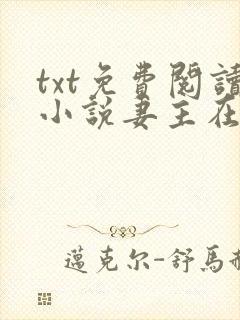 txt免費閱讀
小說妻主在
邁克尔-舒馬赫